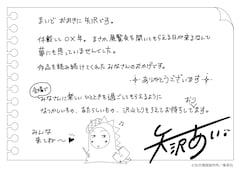 まいど おおきに 矢沢です。
休載して〇×年。まさか、展覧会を開いてもらえる日が来るなんて
夢にも思っていませんでした。
作品を読み続けてくれた みなさんのおかげです。
ありがとうございます
会場で
みなさんに楽しいひとときを過ごしてもらえるように
なつかしいもの、あたらしいもの、沢山とりそろえてお待ちしてます。
みんな
来てねー
矢沢あい